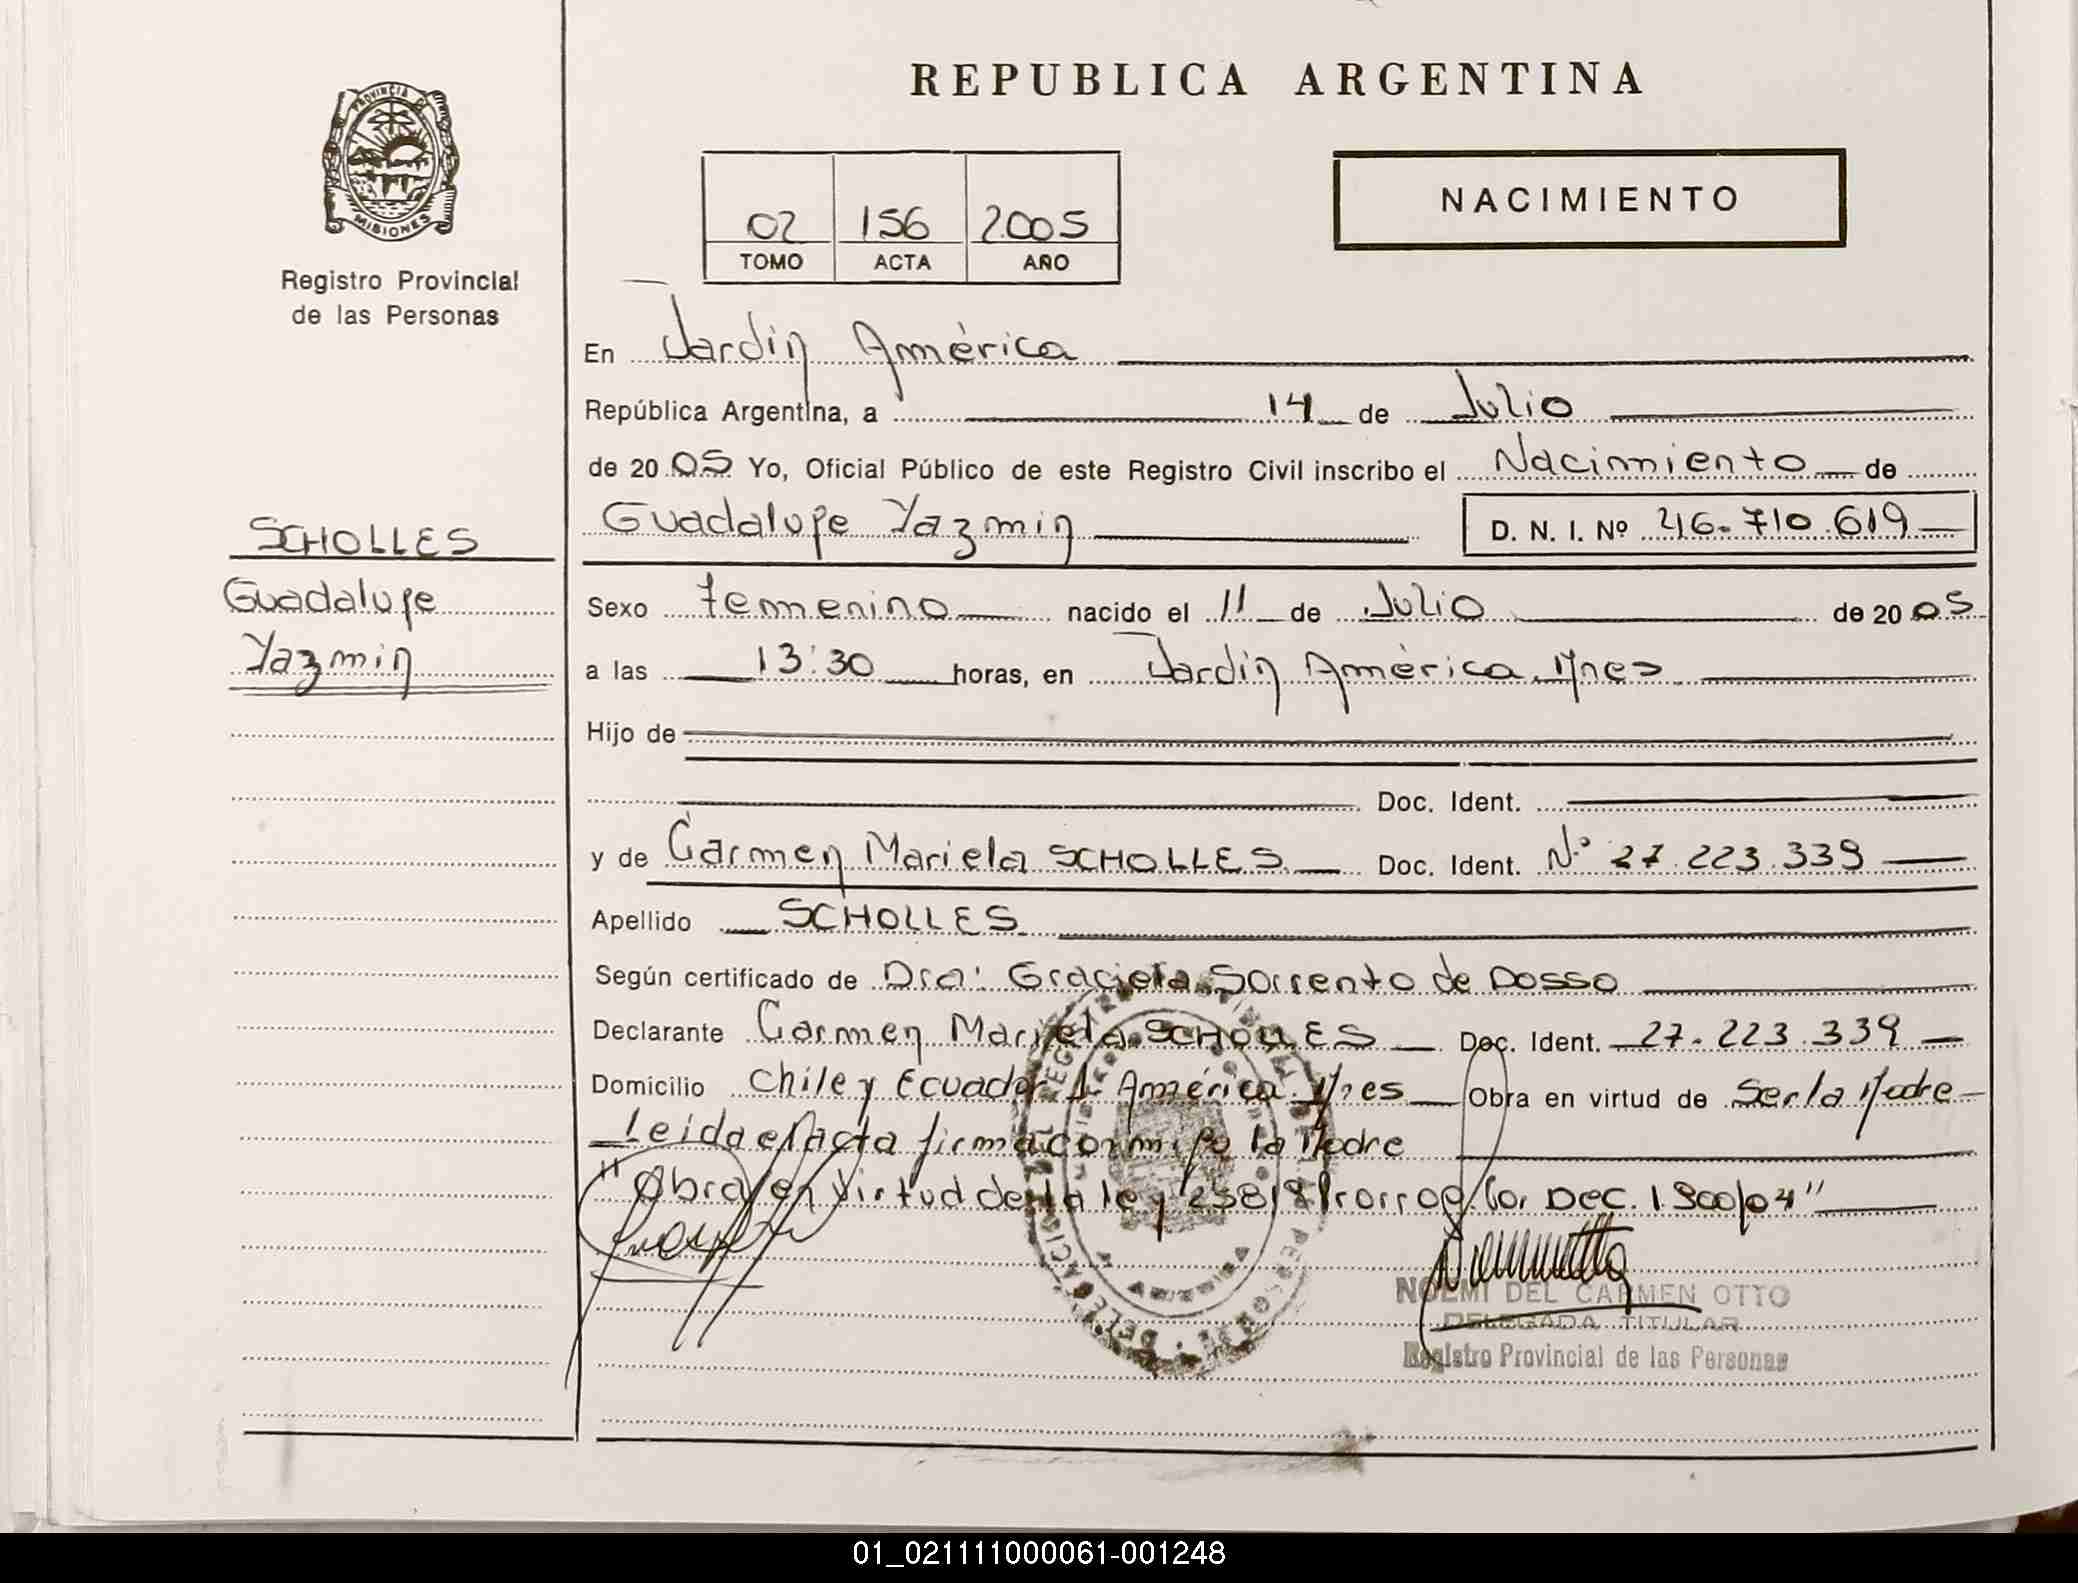 REPUBLICA ARGENTINA
PROVINCIA DE
MISIONES
Registro Provincial
de las Personas
02 156 2005
TOMO ACTA AÑO
NACIMIENTO
En Jardín América
República Argentina, a 14 de Julio
de 2005 Yo, Oficial Público de este Registro Civil inscribo el Nacimiento de
Guadalupe Yazmin D. N. I. Nº 46.710.619
SCHOLLES
Guadalupe
Yazmin
Sexo Femenino nacido el 11 de Julio de 2005
a las 13:30 horas, en Jardín América Mnes
Hijo de
Doc. Ident.
y de Carmen Mariela SCHOLLES Doc. Ident. Nº 27.223.339
Apellido SCHOLLES
Según certificado de Dra: Graciela Sorrento de Dosso
Declarante Carmen Mariela SCHOLLES Doc. Ident. 27.223.339
Domicilio Chile y Ecuador J. América Mnes Obra en virtud de Ser la Madre
Leida el Acta firma conmigo la Madre
"Obra en virtud de la ley 25819 Prorrog. Por Dec. 1.900/04"
NOEMI DEL CARMEN OTTO
DELEGADA TITULAR
Registro Provincial de las Personas
01_021111000061-001248